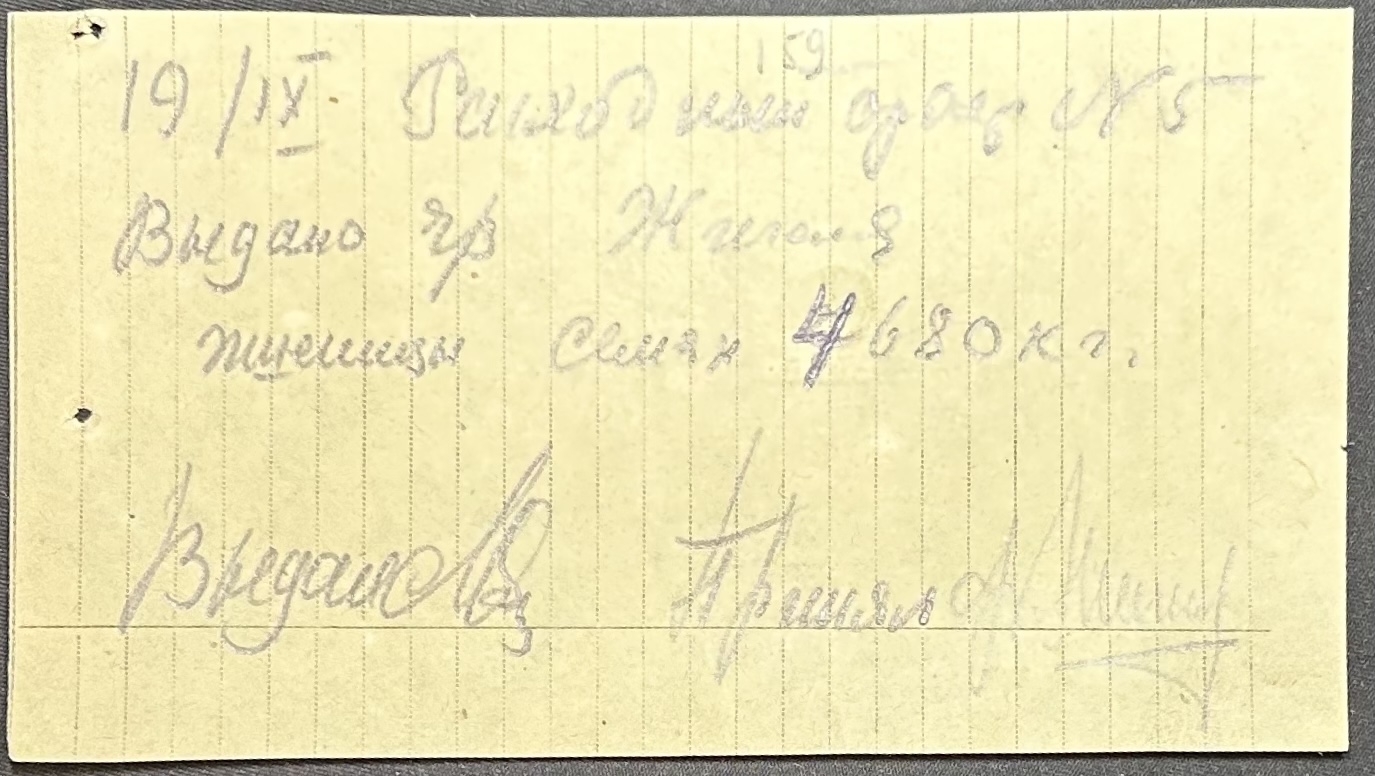 159
19/IX Расходный ордер N 5
Выдано гр
пшеницы семян 4680 кг.
Выдано Принял